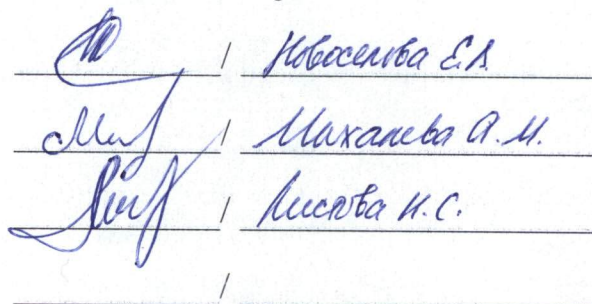 / Новоселова Е.А.
/ Маханева А.М.
/ Лисова Н.С.
/